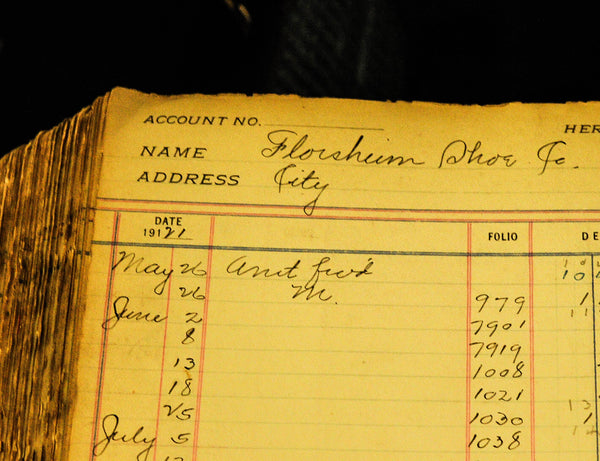 ACCOUNT NO.
HER
NAME Florsheim Shoe Co.
ADDRESS City
DATE FOLIO DE
191 21
May 26 Amt fwd 10
26 M. 979 1
June 2 7901 11
8 7919
13 1008
18 1021
25 1030 1
July 5 1038